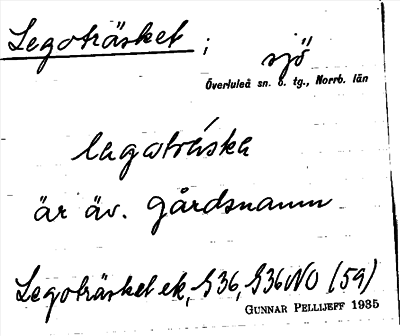 Legoträsket ; sjö
Överluleå sn. o. tg., Norrb. län
är äv. gårdsnamn
Legoträsket ek, S36, S36NO (59)
GUNNAR PELLIJEFF 1935